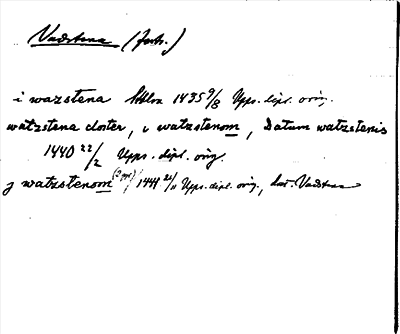 Vadstena (forts.)
i wazstena Sthlm 1435 9/8 Upps. dipl. orig.
watzstena closter, i watzstenom, Datum watzstenis
1440 22/2 Upps. dipl. orig.
j watzstenom 1444 22/11 Upps. dipl. orig., dat. Vadstena